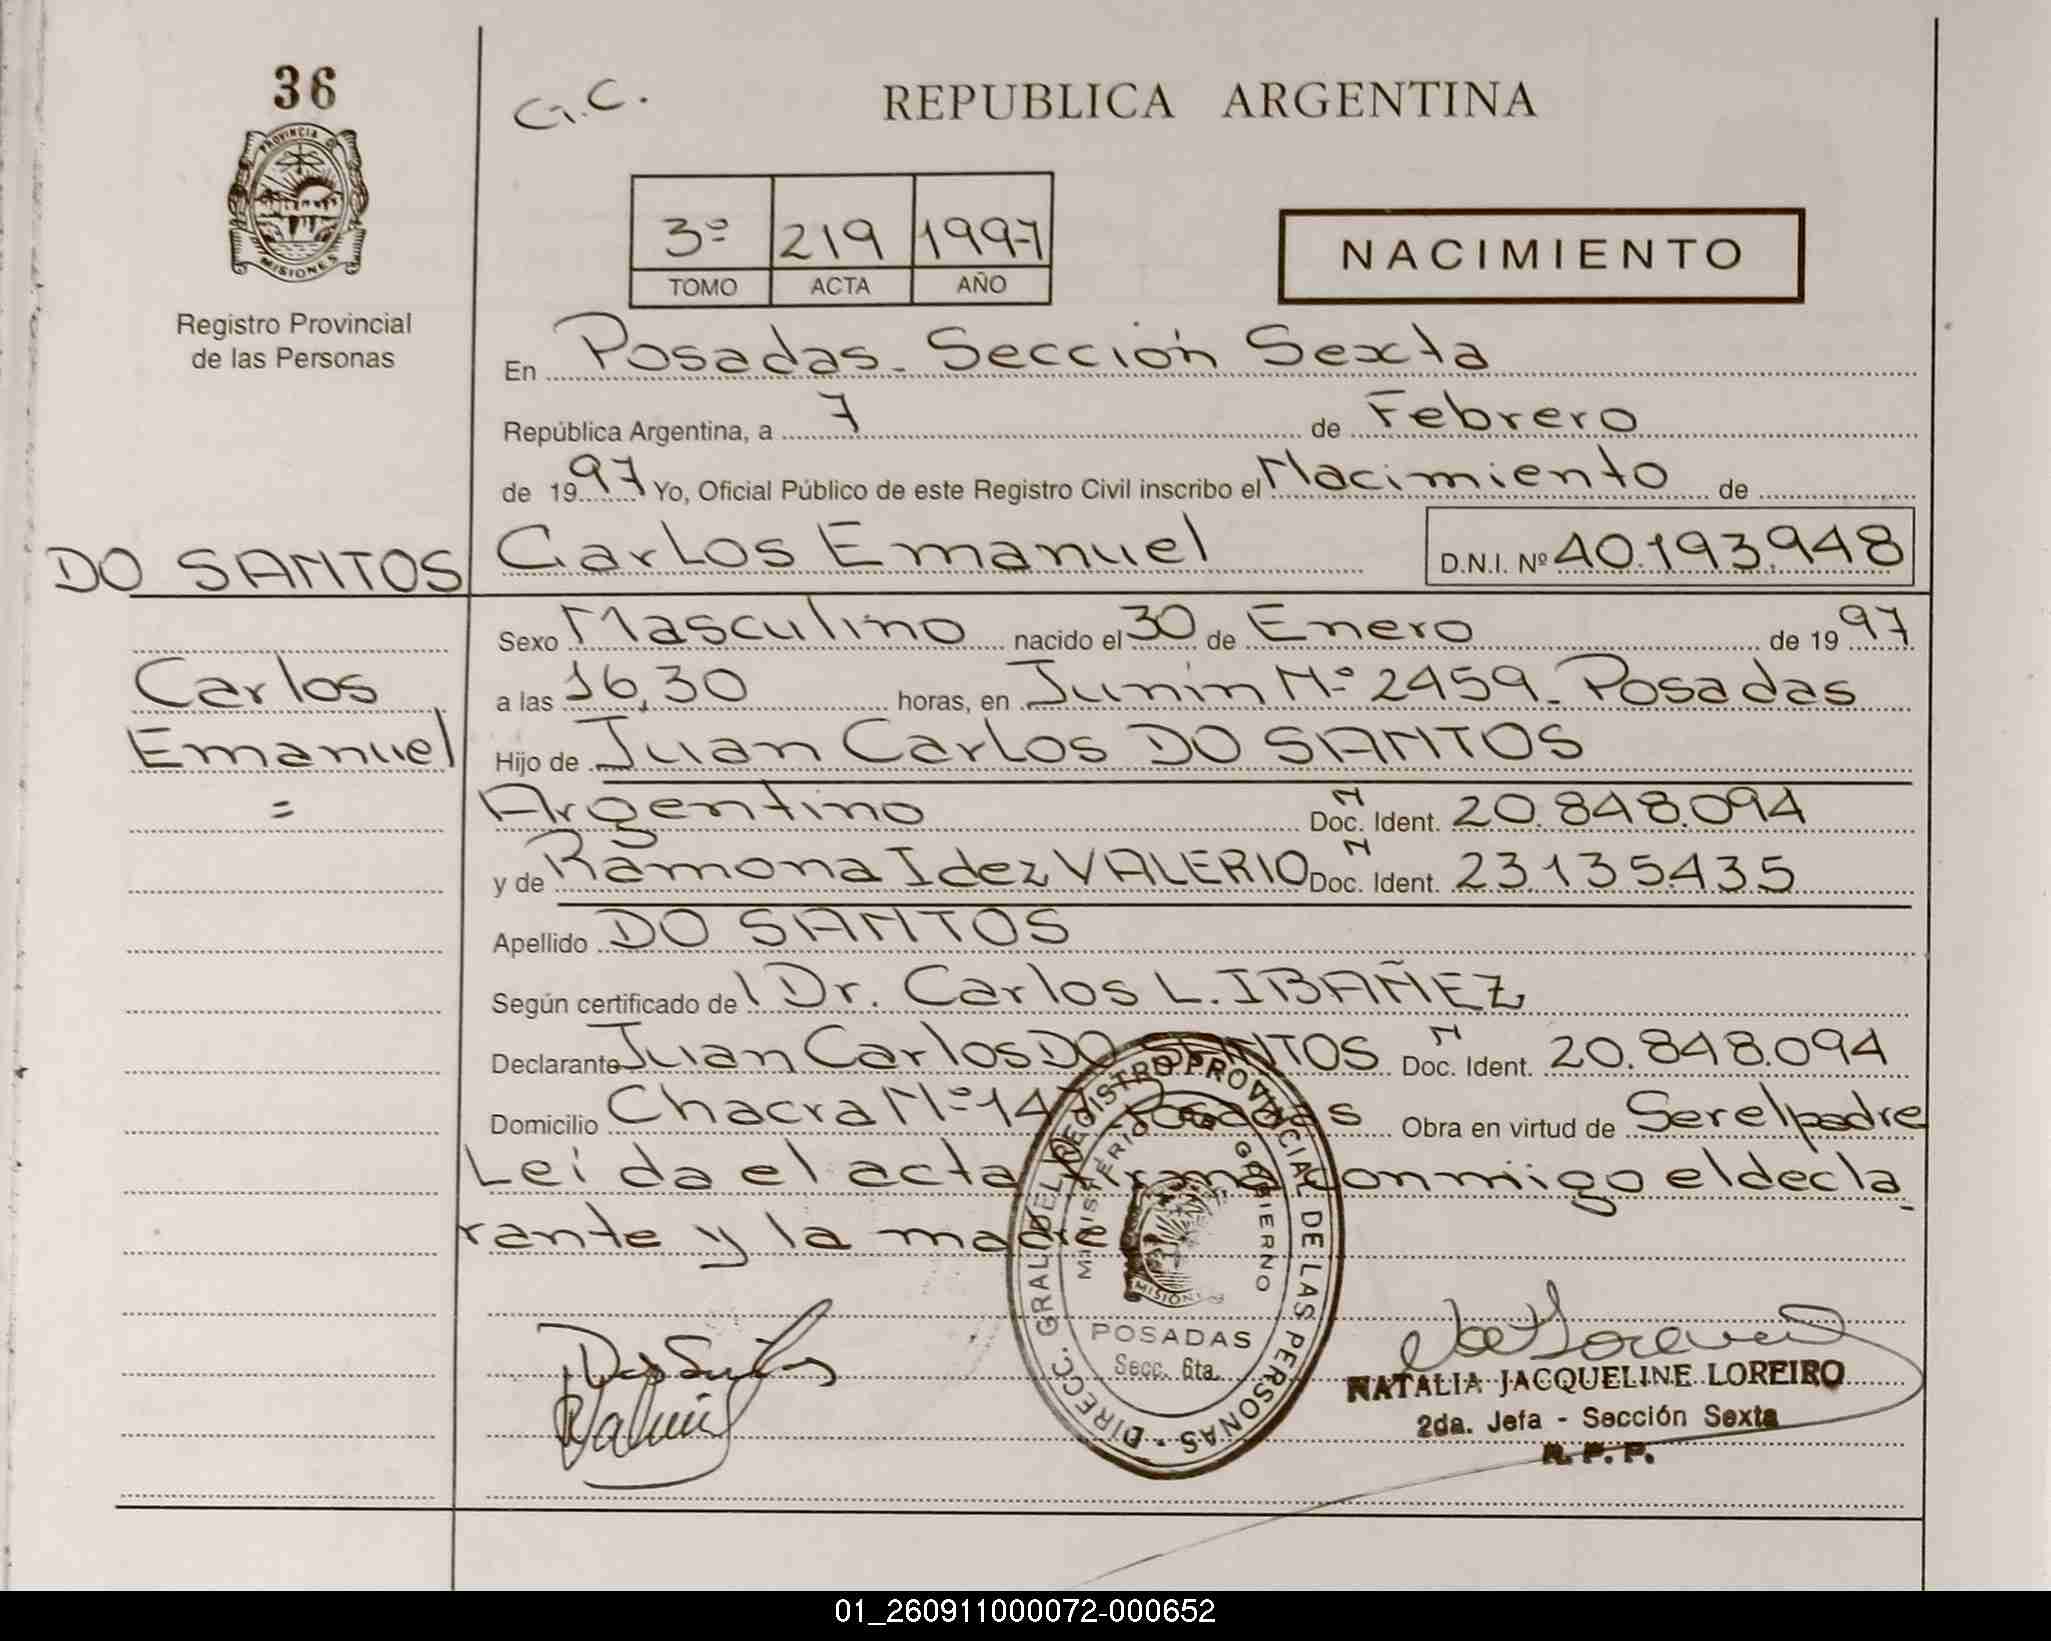 36
G.C.
REPUBLICA ARGENTINA
PROVINCIA D
MISIONES
Registro Provincial
de las Personas
3º 219 1997
TOMO ACTA AÑO
NACIMIENTO
En Posadas. Sección Sexta
República Argentina, a 7 de Febrero
de 1997 Yo, Oficial Público de este Registro Civil inscribo el Nacimiento de
DO SANTOS Carlos Emanuel D.N.I. Nº 40.193.948
Sexo Masculino nacido el 30 de Enero de 1997
Carlos a las 16,30 horas, en Junin Nº 2459. Posadas
Emanuel Hijo de Juan Carlos DO SANTOS
= Argentino N Doc. Ident. 20.848.094
y de Ramona Idez VALERIO N Doc. Ident. 23.135.435
Apellido DO SANTOS
Según certificado de l Dr. Carlos L. IBAÑEZ
Declarante Juan Carlos DO SANTOS N Doc. Ident. 20.848.094
Domicilio Chacra Nº Posadas Obra en virtud de Ser el padre
Leida el acta firma conmigo el decla
rante y la madre
DIRECC. GRAL. DEL REGISTRO PROVINCIAL DE LAS PERSONAS
MINISTERIO GOBIERNO
MISIONES
POSADAS
Secc. 6ta.
NATALIA JACQUELINE LOREIRO
2da. Jefa - Sección Sexta
R. P. P.
01_260911000072-000652